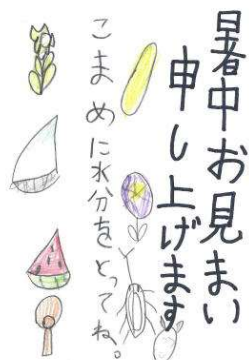 暑中お見まい
申し上げます
こまめに水分をとってね。